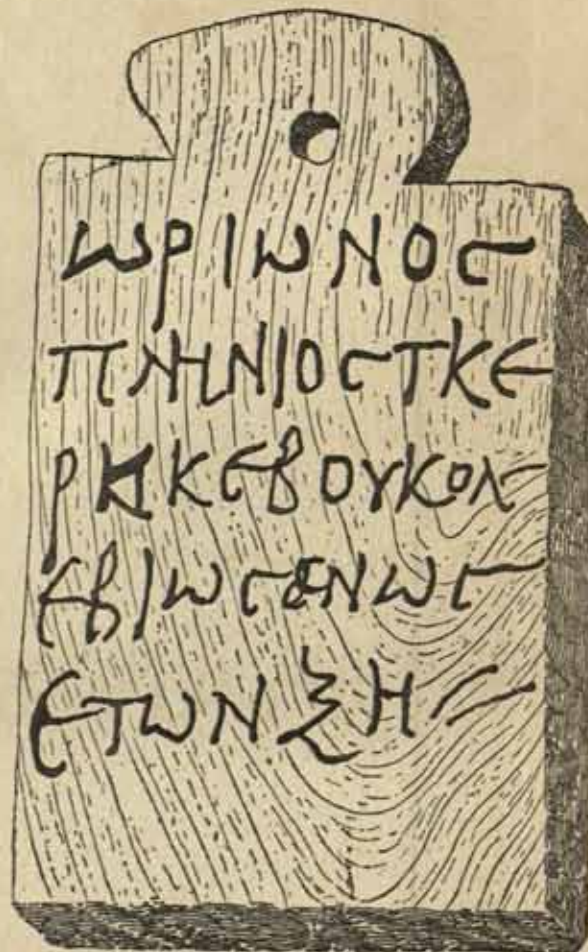 ωΡΙωΝΟϹ
ΠΛΗΝΙΟϹΤΚΕ
ΡΗΚΕΒΟΥΚΟΛ
ΕΒΙωϹΕΝωϹ
ΕΤωΝΞΗ//